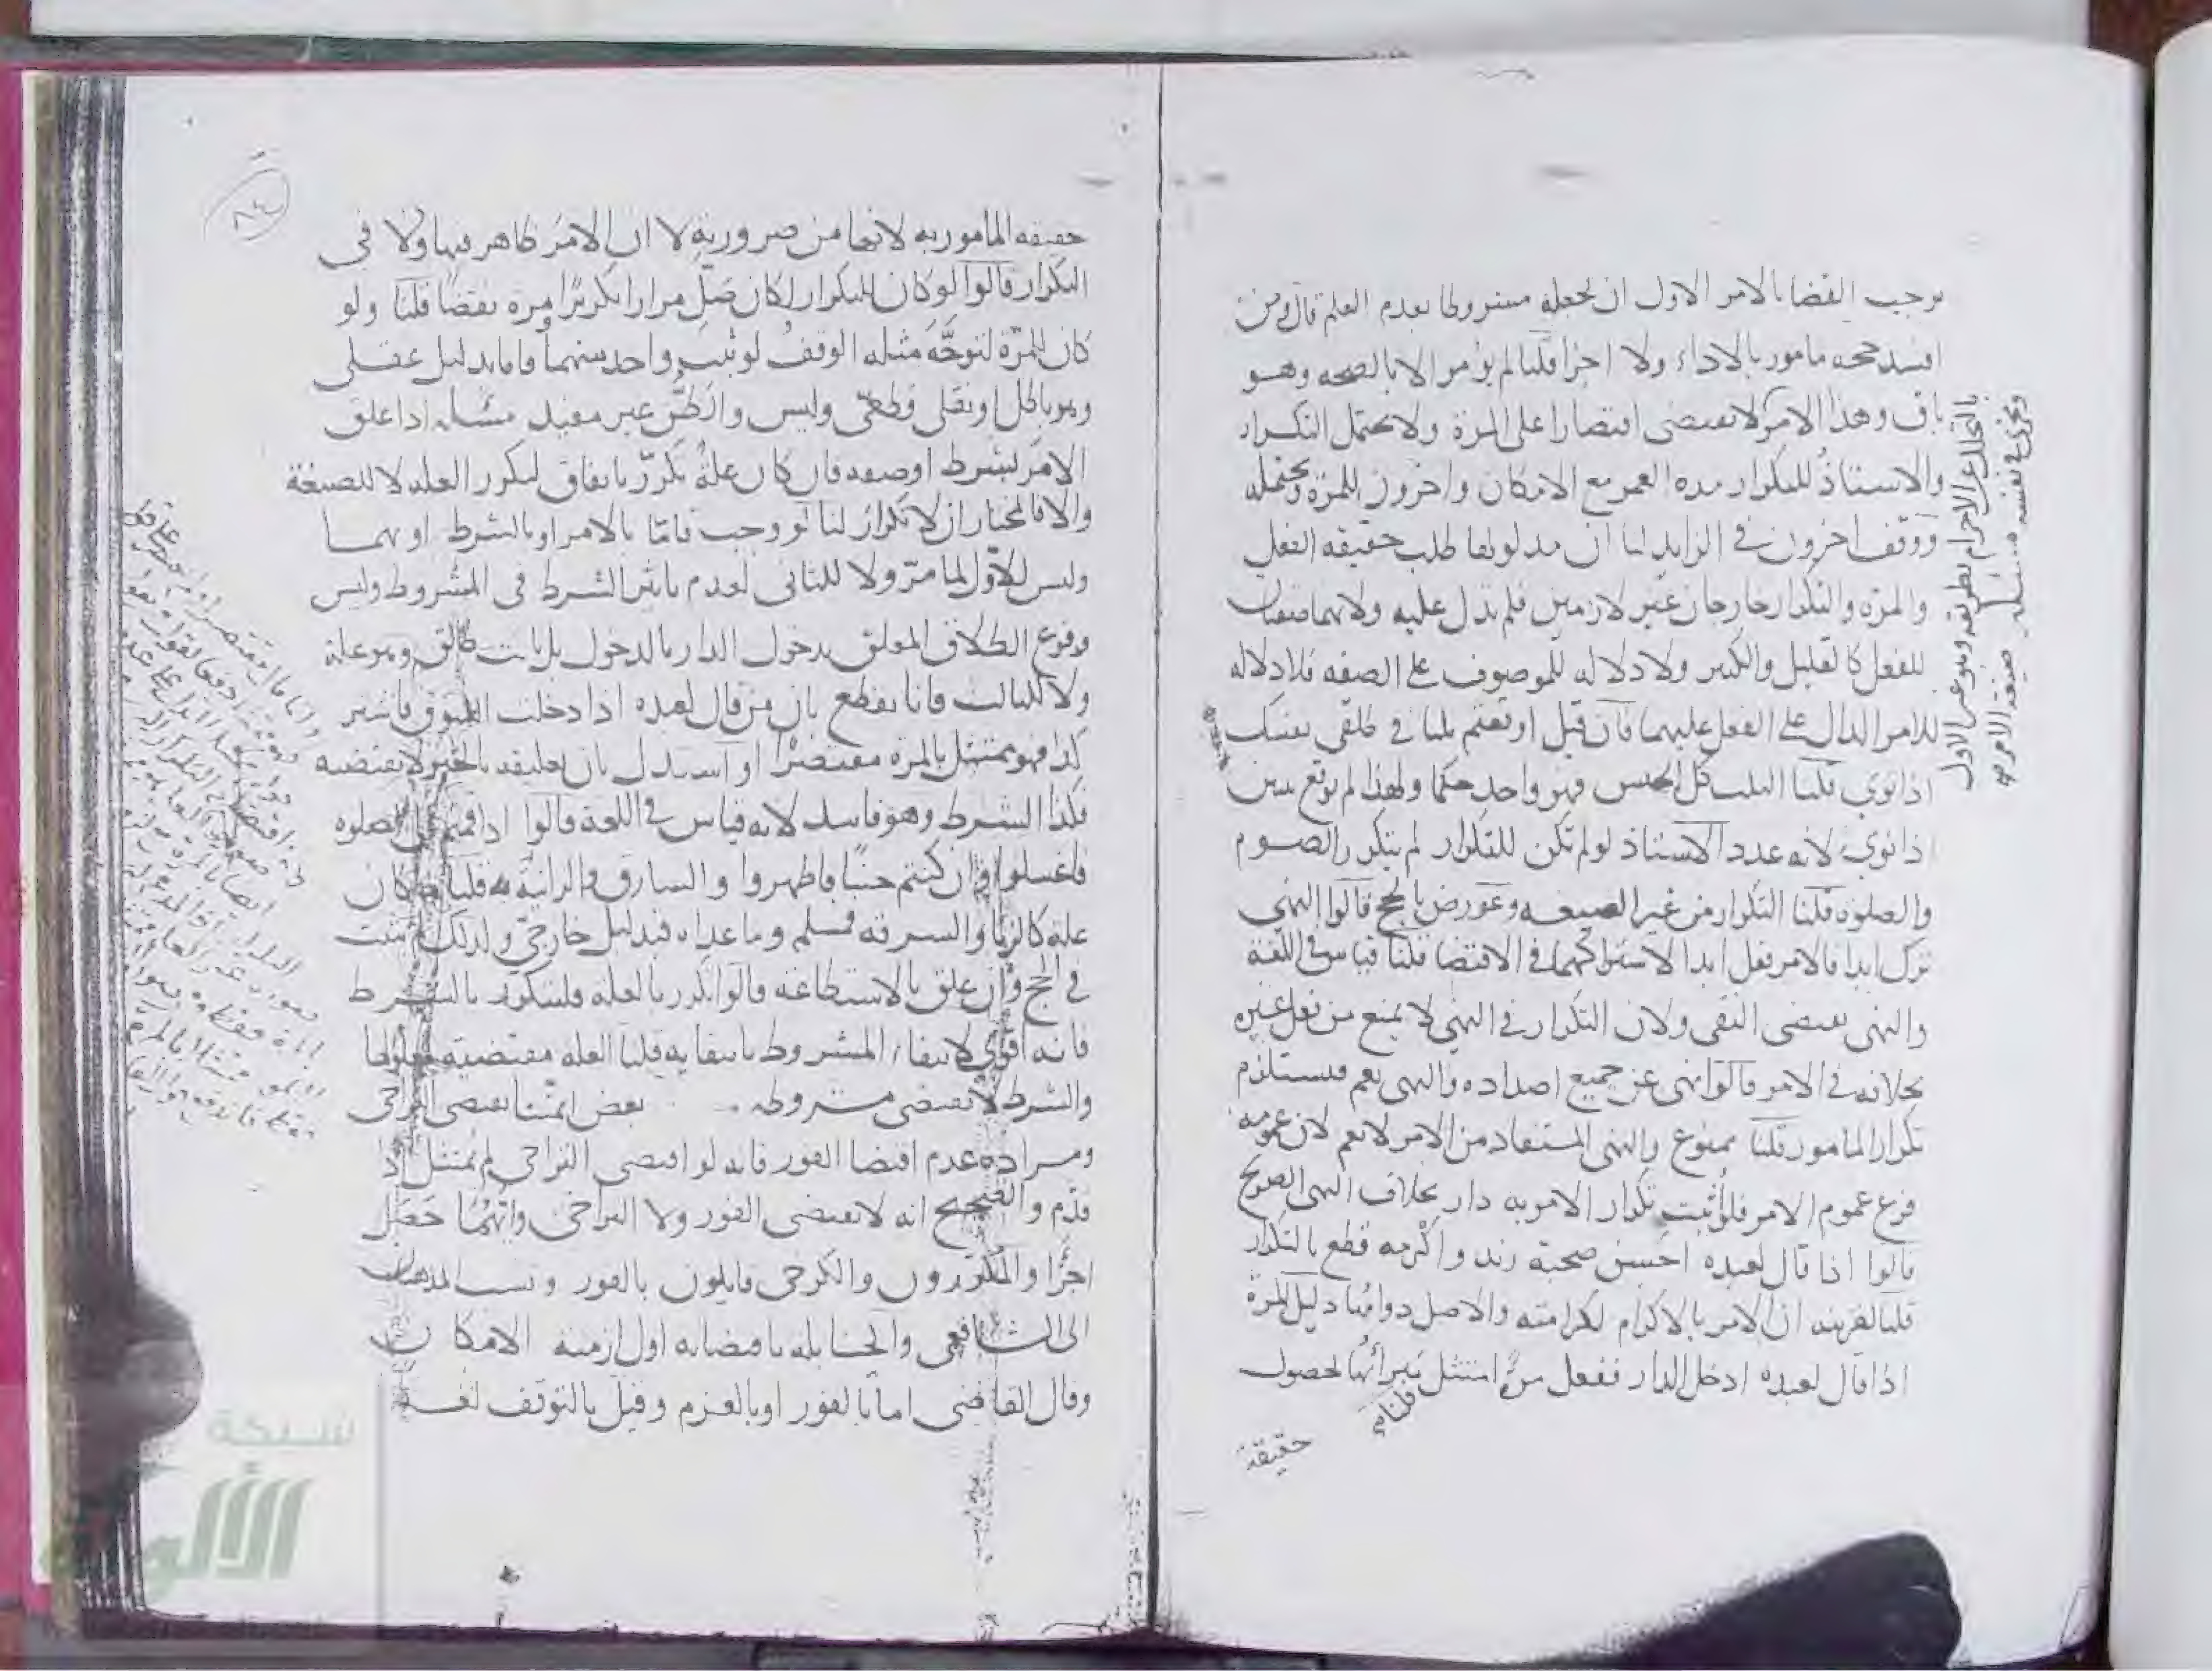 يوجب القضا بالامر الاول ان يجعله مشروطا بعدم العلم قال ومن
افسد حجه مامور بالاداء ولا اجزا قلنا لم يؤمر الا بالصحه وهو
باق وهذا الامر لا يقتضى اقتصارا على المرة ولا يحتمل التكرار
والاستاذ للتكرار مده العمر مع الامكان واخرون للمرة ويحتمله
ووقف اخرون في الزايد لنا ان مدلولها طلب حقيقه الفعل
والمرة والتكرار خارجان غير لازمين فلم تدل عليه ولانهما صفتان
للفعل كالقليل والكثير ولا دلاله للموصوف على الصفه فلا دلاله
للامر الدال على الفعل عليهما فان قيل او تعم قلنا في طلقى نفسك
اذا نوى قلنا الثلث كل الجنس فهو واحد حكما ولهذا لم توقع ثنتين
اذا نوى لانه عدد الاستاذ لو لم تكن للتكرار لم يتكرر الصوم
والصلوه قلنا التكرار من غير الصيغه وعورض بالحج قالوا النهي
ترك ابدا فالامر فعل ابدا لاشتراكهما في الاقتضا قلنا قياس في اللغة
والنهى يقتضى النفى ولان التكرار في النهي لا يمنع من فعل غيره
بخلافه في الامر قالوا نهى عن جميع اضداده والنهى يعم فيستلزم
تكرار المامور قلنا ممنوع والنهى المستفاد من الامر لا يعم لان عمومه
فرع عموم الامر فلو اثبت تكرار الامر به دار بخلاف النهى الصريح
قالوا اذا قال لعبده احسن صحبة زيد واكرمه قطع بالتكرار
قلنا لقرينه ان الامر بالاكرام لكرامته والاصل دوامها دليل المرة
اذا قال لعبده ادخل الدار ففعل مرة امتثل قلنا لحصول
حقيقة
بالتحلل عن الاحرام بطريقه وهو عن الاول
ويجزى في نفسه مسئله صيغة الامر
حقيقه المامور به لانها من ضروريه لا ان الامر ظاهر فيها ولا فى
التكرار قالوا لو كان للتكرار لكان صل مرارا تكريرا ومرة نقضا قلنا ولو
كان للمرة لتوجه مثله الوقف لو ثبت واحد منهما فاما بدليل عقلى
وهو باطل او نقلى قطعى وليس والظن غير مفيد مسئله اذا علق
الامر بشرط او صفه فان كان علة تكرر باتفاق لتكرر العله لا للصيغة
والا فالمختار ان لا تكرار لنا لو وجب فاما بالامر او بالشرط او بهما
وليس للاول لما مر ولا للثانى لعدم تاثير الشرط فى المشروط وليس
وقوع الطلاق المعلق بدخول الدار بالدخول بل بانت طالق وهو علة
ولا للثالث فانا نقطع بان من قال لعبده اذا دخلت السوق فاشتر
كذا فهو ممتثل بالمرة مقتصرا او استدل بان تعليقه بالخبر لا يقتضيه
فكذا الشرط وهو فاسد لانه قياس في اللغة قالوا اذا قمتم الى الصلوه
فاغسلوا وان كنتم جنبا فاطهروا والسارق والزانية قلنا ما كان
علة كالزنا والسرقه فمسلم وما عداه فبدليل خارجى ولذلك لم يثبت
في الحج وان علق بالاستطاعة قالوا تكرر بالعله فليتكرر بالشرط
فانه اقوى لانتفاء المشروط بانتفايه قلنا العله مقتضية معلولها
والشرط لا يقتضى مشروطه بعض ائمتنا يقتضى التراخى
ومراده عدم اقتضا الفور فانه لو اقتضى التراخى لم يمتثل اذ
قدم والصحيح انه لا يقتضى الفور ولا التراخى وايهما حصل
اجزا والمكررون والكرخى قايلون بالفور ونسب المذهبان
الى الشافعى والحنابله باقتضايه اول ازمنة الامكان
وقال القاضى اما بالفور او بالعزم وقيل بالتوقف لغة
شبكة
الألوكة